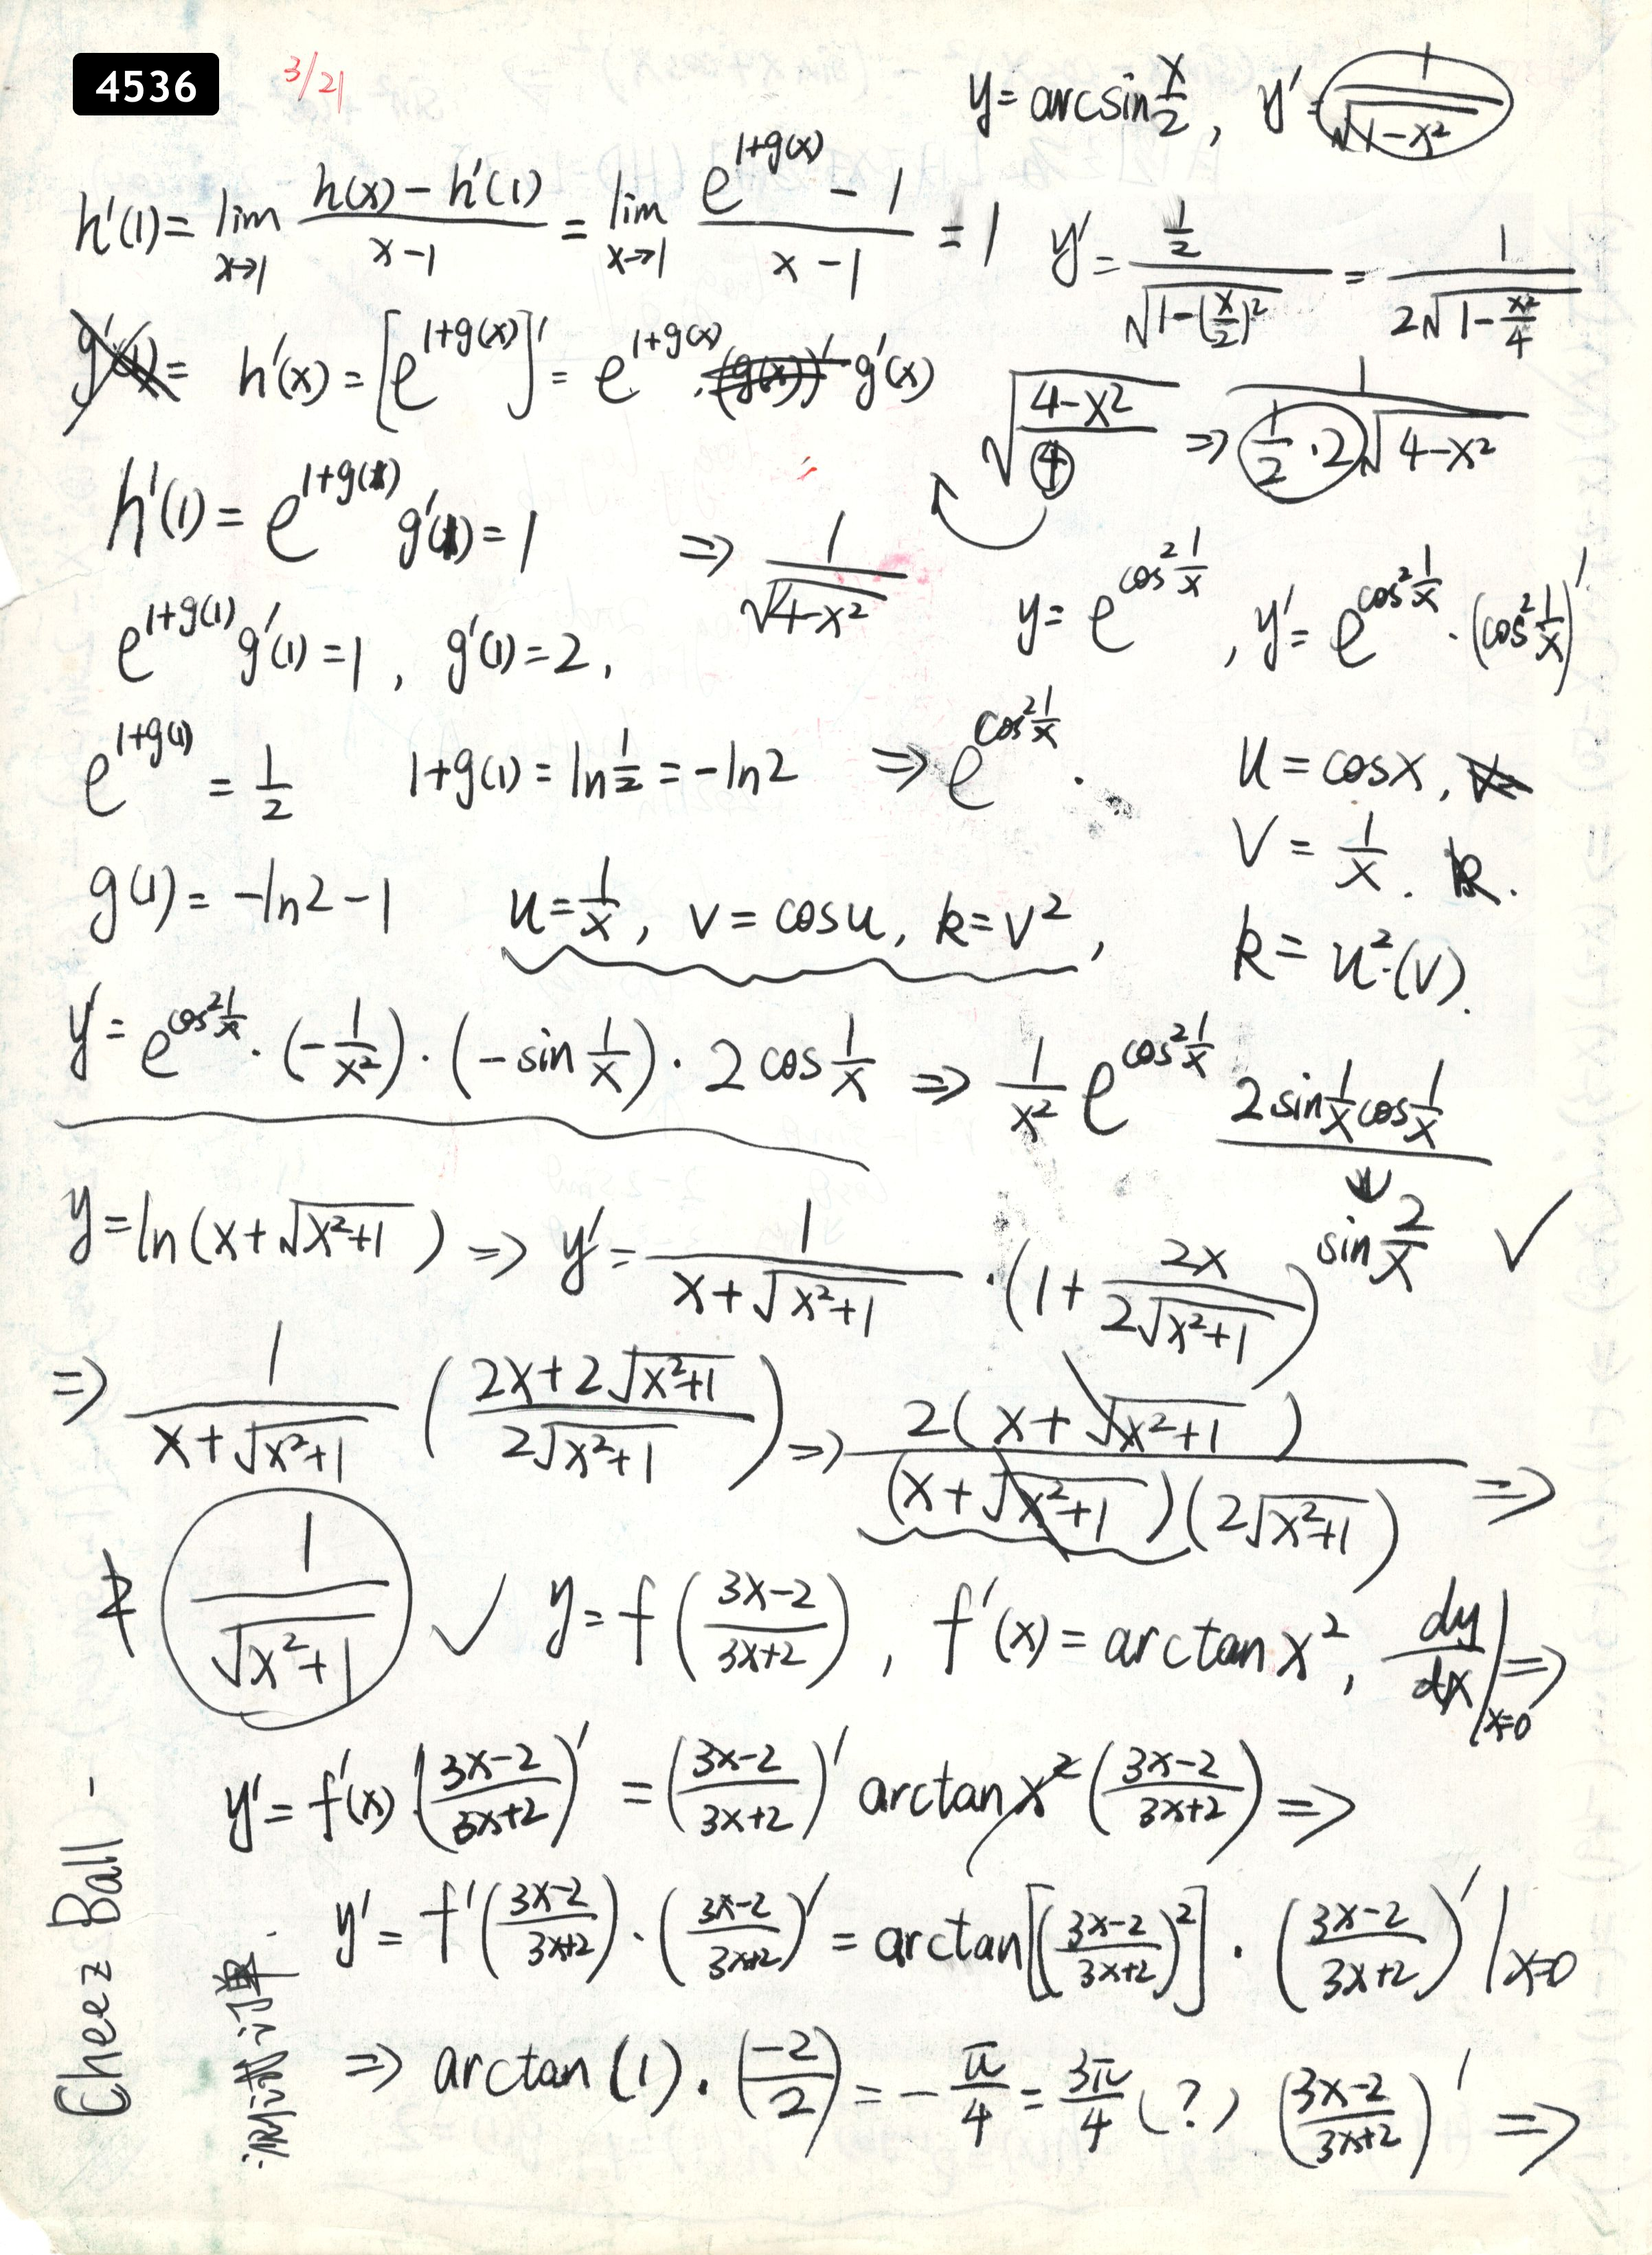 4536
3/21
y = arcsin x/2 , y' = 1/√(1-x²)
h'(1) = lim x→1 (h(x) - h'(1))/(x-1) = lim x→1 (e^(1+g(x)) - 1)/(x-1) = 1
y' = (1/2)/√(1-(x/2)²) = 1/(2√(1-x²/4))
h'(x) = [e^(1+g(x))]' = e^(1+g(x)) · g'(x)
√((4-x²)/4) ⇒ 1/(1/2·2√(4-x²))
h'(1) = e^(1+g(1)) g'(1) = 1
⇒ 1/√(4-x²)
y = e^(cos² 1/x) , y' = e^(cos² 1/x) · (cos² 1/x)'
e^(1+g(1)) g'(1) = 1 , g'(1) = 2 ,
e^(1+g(1)) = 1/2 1+g(1) = ln 1/2 = -ln2
⇒ e^(cos² 1/x) ·
u = cosx ,
v = 1/x .
k = u²·(v).
g(1) = -ln2 - 1
u = 1/x , v = cosu , k = v² ,
y' = e^(cos² 1/x) · (-1/x²) · (-sin 1/x) · 2cos 1/x ⇒ 1/x² e^(cos² 1/x) 2sin 1/x cos 1/x
sin 2/x ✓
y = ln(x+√(x²+1)) ⇒ y' = 1/(x+√(x²+1)) · (1 + 2x/(2√(x²+1)))
⇒ 1/(x+√(x²+1)) ((2x+2√(x²+1))/(2√(x²+1))) ⇒ 2(x+√(x²+1))/((x+√(x²+1))(2√(x²+1))) ⇒
1/√(x²+1) ✓
y = f((3x-2)/(3x+2)) , f'(x) = arctan x² , dy/dx|x=0 ⇒
y' = f'(x) · ((3x-2)/(3x+2))' = ((3x-2)/(3x+2))' arctan x² ((3x-2)/(3x+2)) ⇒
y' = f'((3x-2)/(3x+2)) · ((3x-2)/(3x+2))' = arctan[((3x-2)/(3x+2))²] · ((3x-2)/(3x+2))' |x=0
⇒ arctan(1) · (-2/2) = -π/4 = 3π/4 (?) ((3x-2)/(3x+2))' ⇒
Cheez Ball -
测试订单.